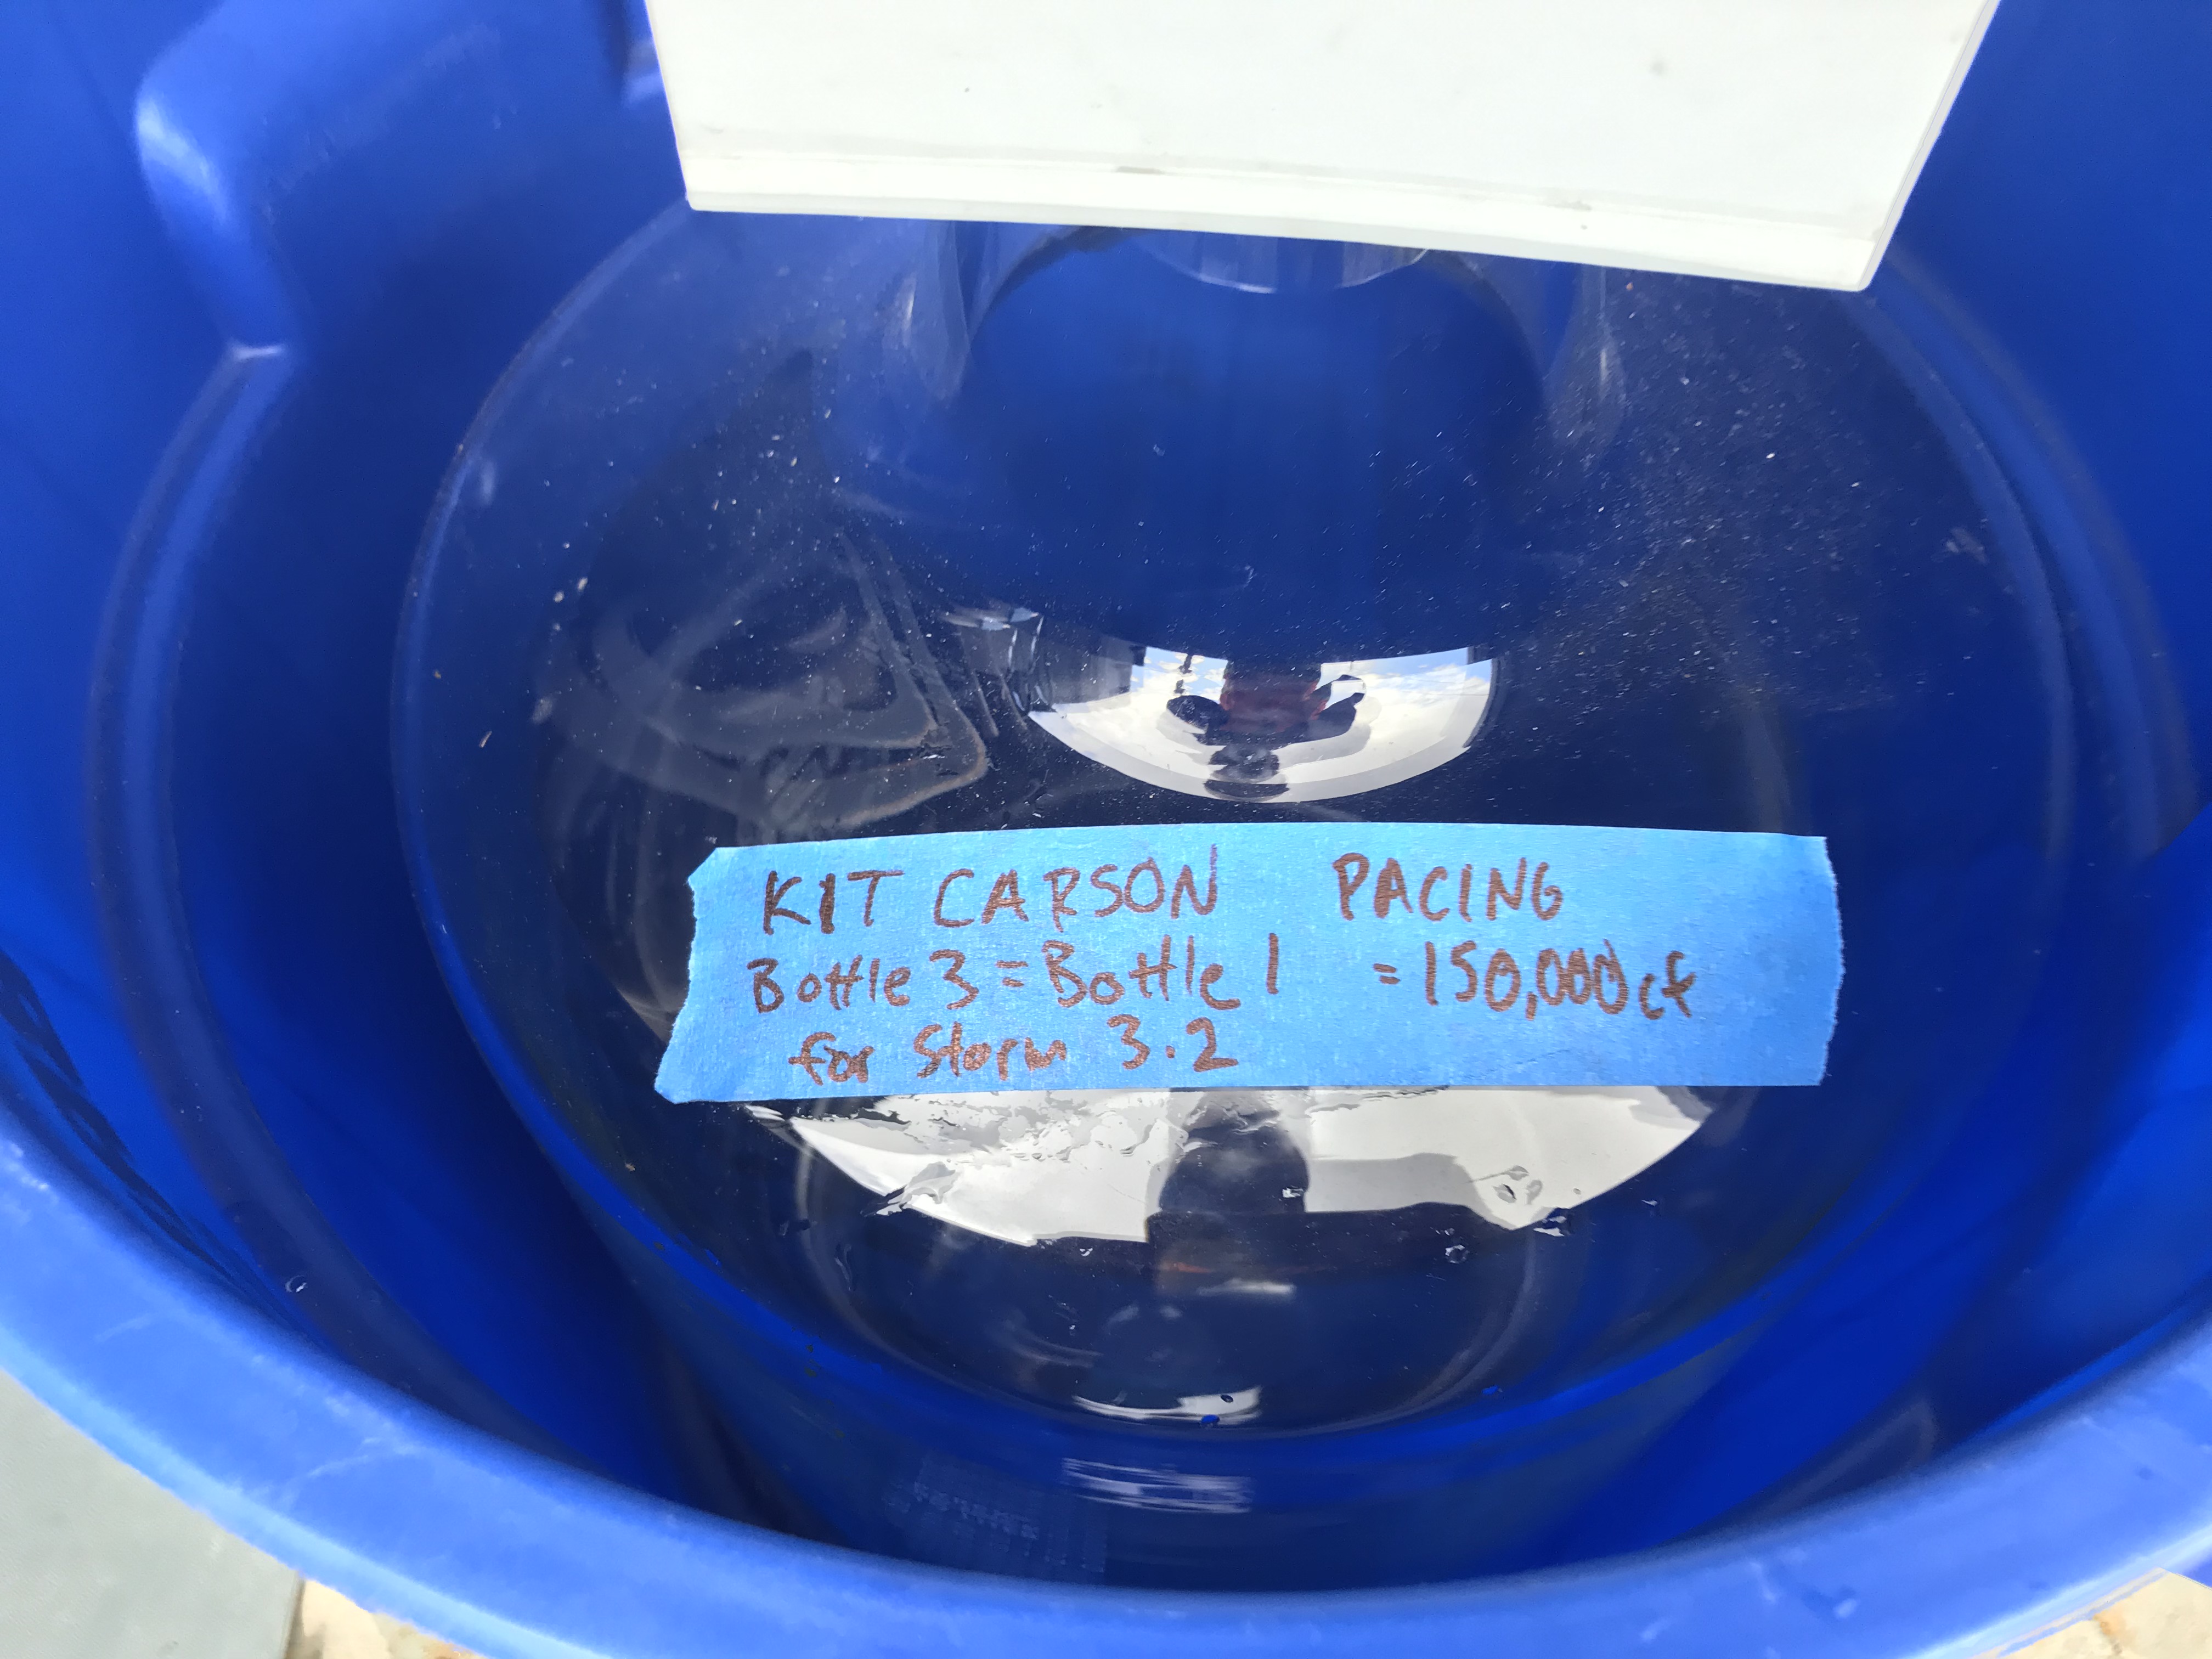 KIT CARSON PACING
Bottle 3 = Bottle 1 = 150,000 cf
for Storm 3.2